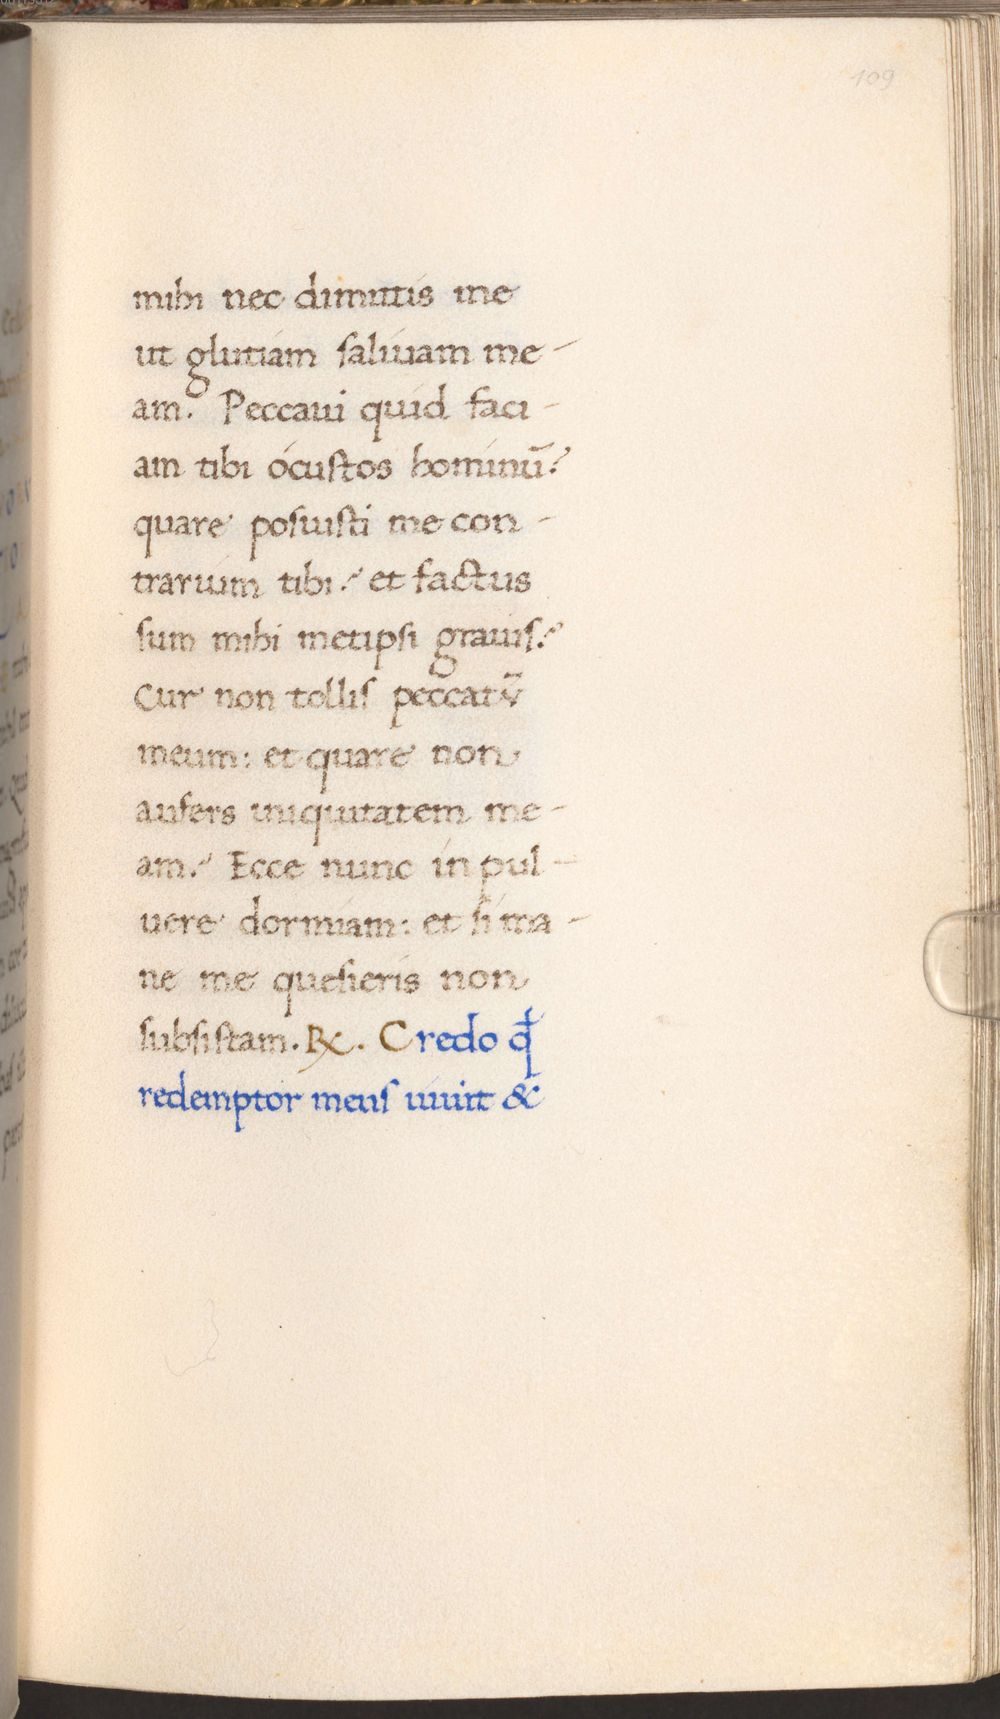 109
mihi nec dimittis me
ut glutiam saliuam me-
am. Peccaui quid faci-
am tibi ó custos hominū?
quare posuisti me con-
trarium tibi? et factus
sum mihi metipsi grauis?
Cur non tollis peccatū
meum: et quare non
aufers iniquitatem me-
am? Ecce nunc in pul-
uere dormiam: et si ma-
ne me quesieris non
subsistam. ℟. Credo qđ
redemptor meus uiuit &